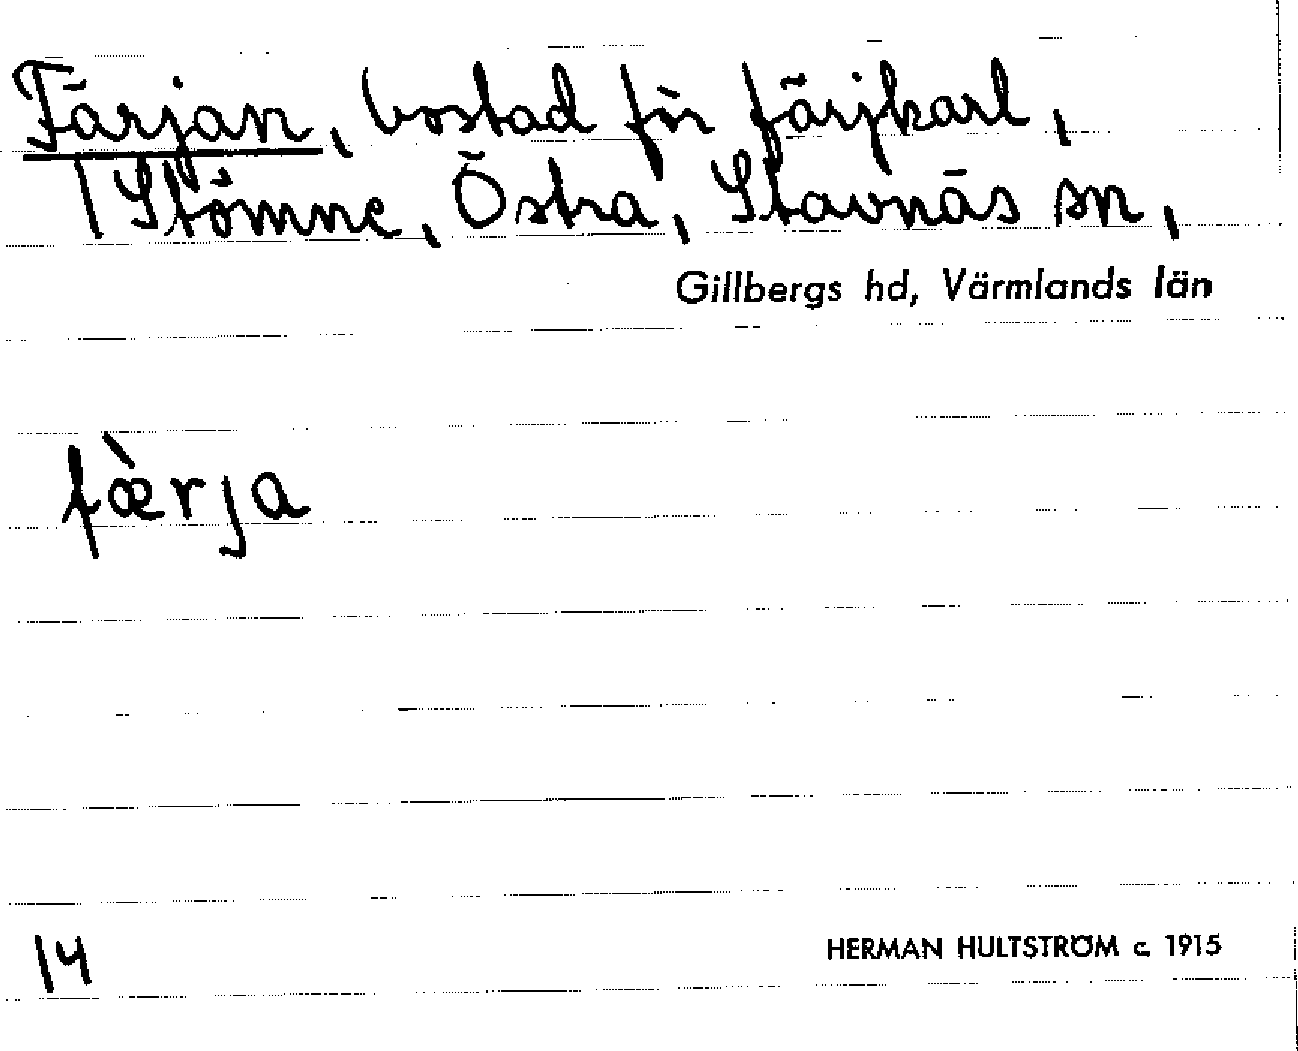 Färjan, bostad för färjkarl,
1 Stömne, Östra, Stavnäs sn,
Gillbergs hd, Värmlands län
fæ̀rja
14
HERMAN HULTSTRÖM c. 1915